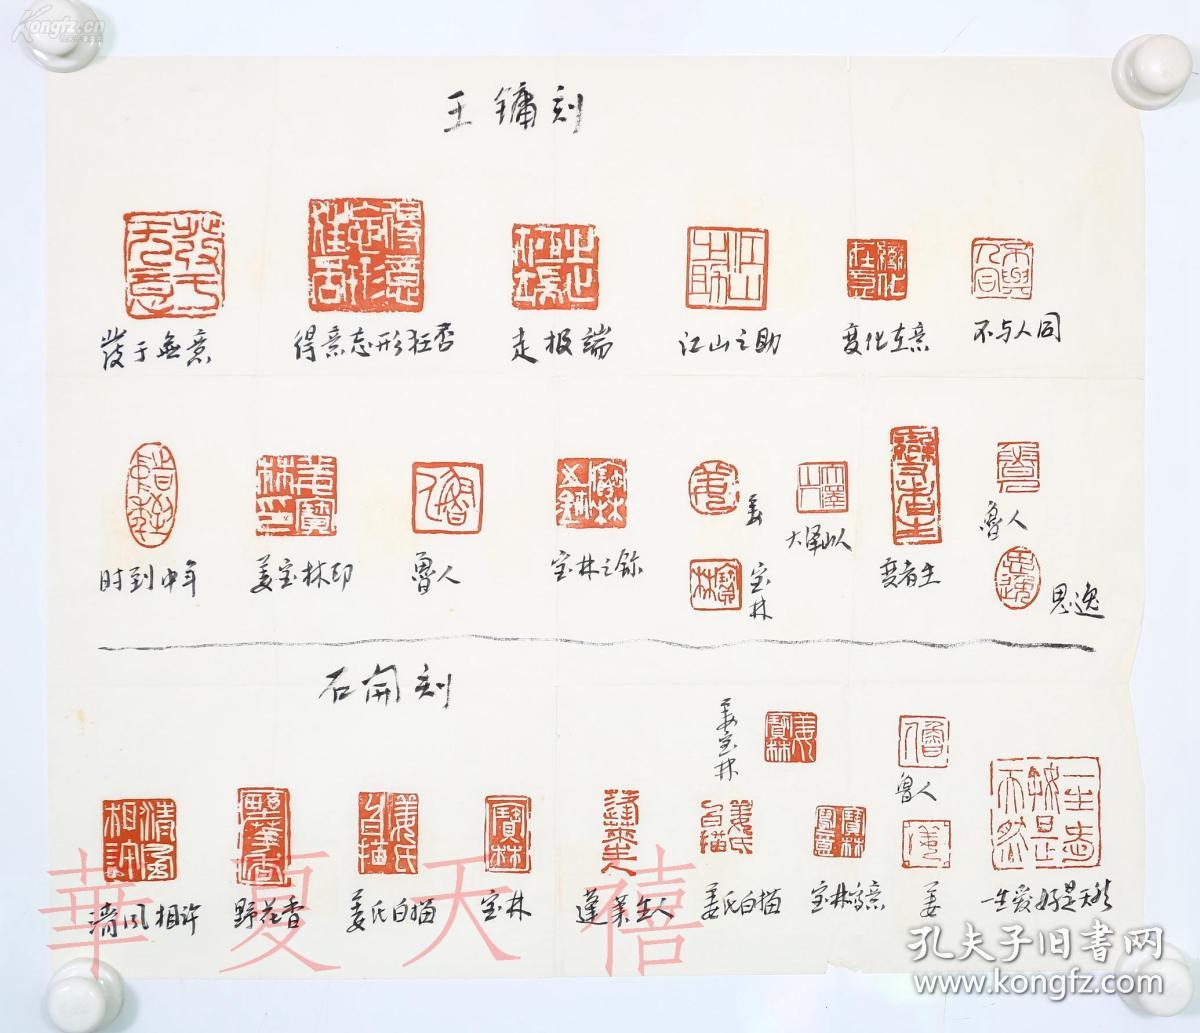 Kongfz.cn
王镛刻
发于無意
得意忘形狂否
走极端
江山之助
变化在意
不与人同
时到中年
姜宝林印
魯人
宝林之鉨
姜
宝林
大泽山人
魯人
思逸
石开刻
姜宝林
魯人
清风相许
野花香
姜氏白描
宝林
蓬莱生人
姜氏白描
宝林写意
姜
一生爱好是天然
華夏天禧
孔夫子旧书网
www.kongfz.com